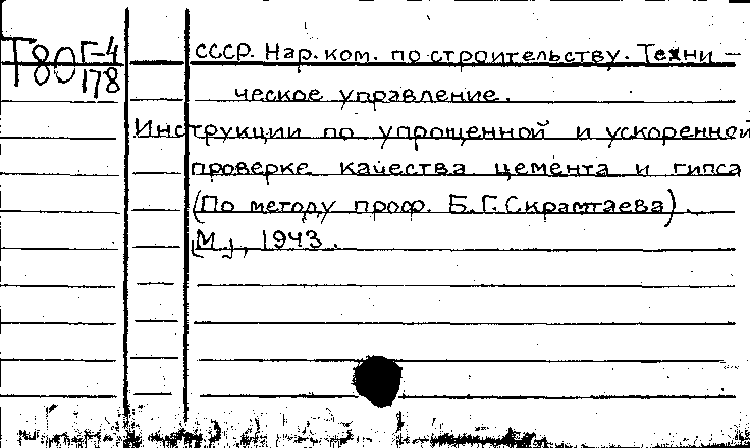 Т80 Г-4
178
СССР. Нар.ком. по строительству. Техни-
ческое управление.
Инструкции по упрощенной и ускоренной
проверке качества цемента и гипса
(По методу проф. Б.Г.Скрамтаева).
[М.], 1943.